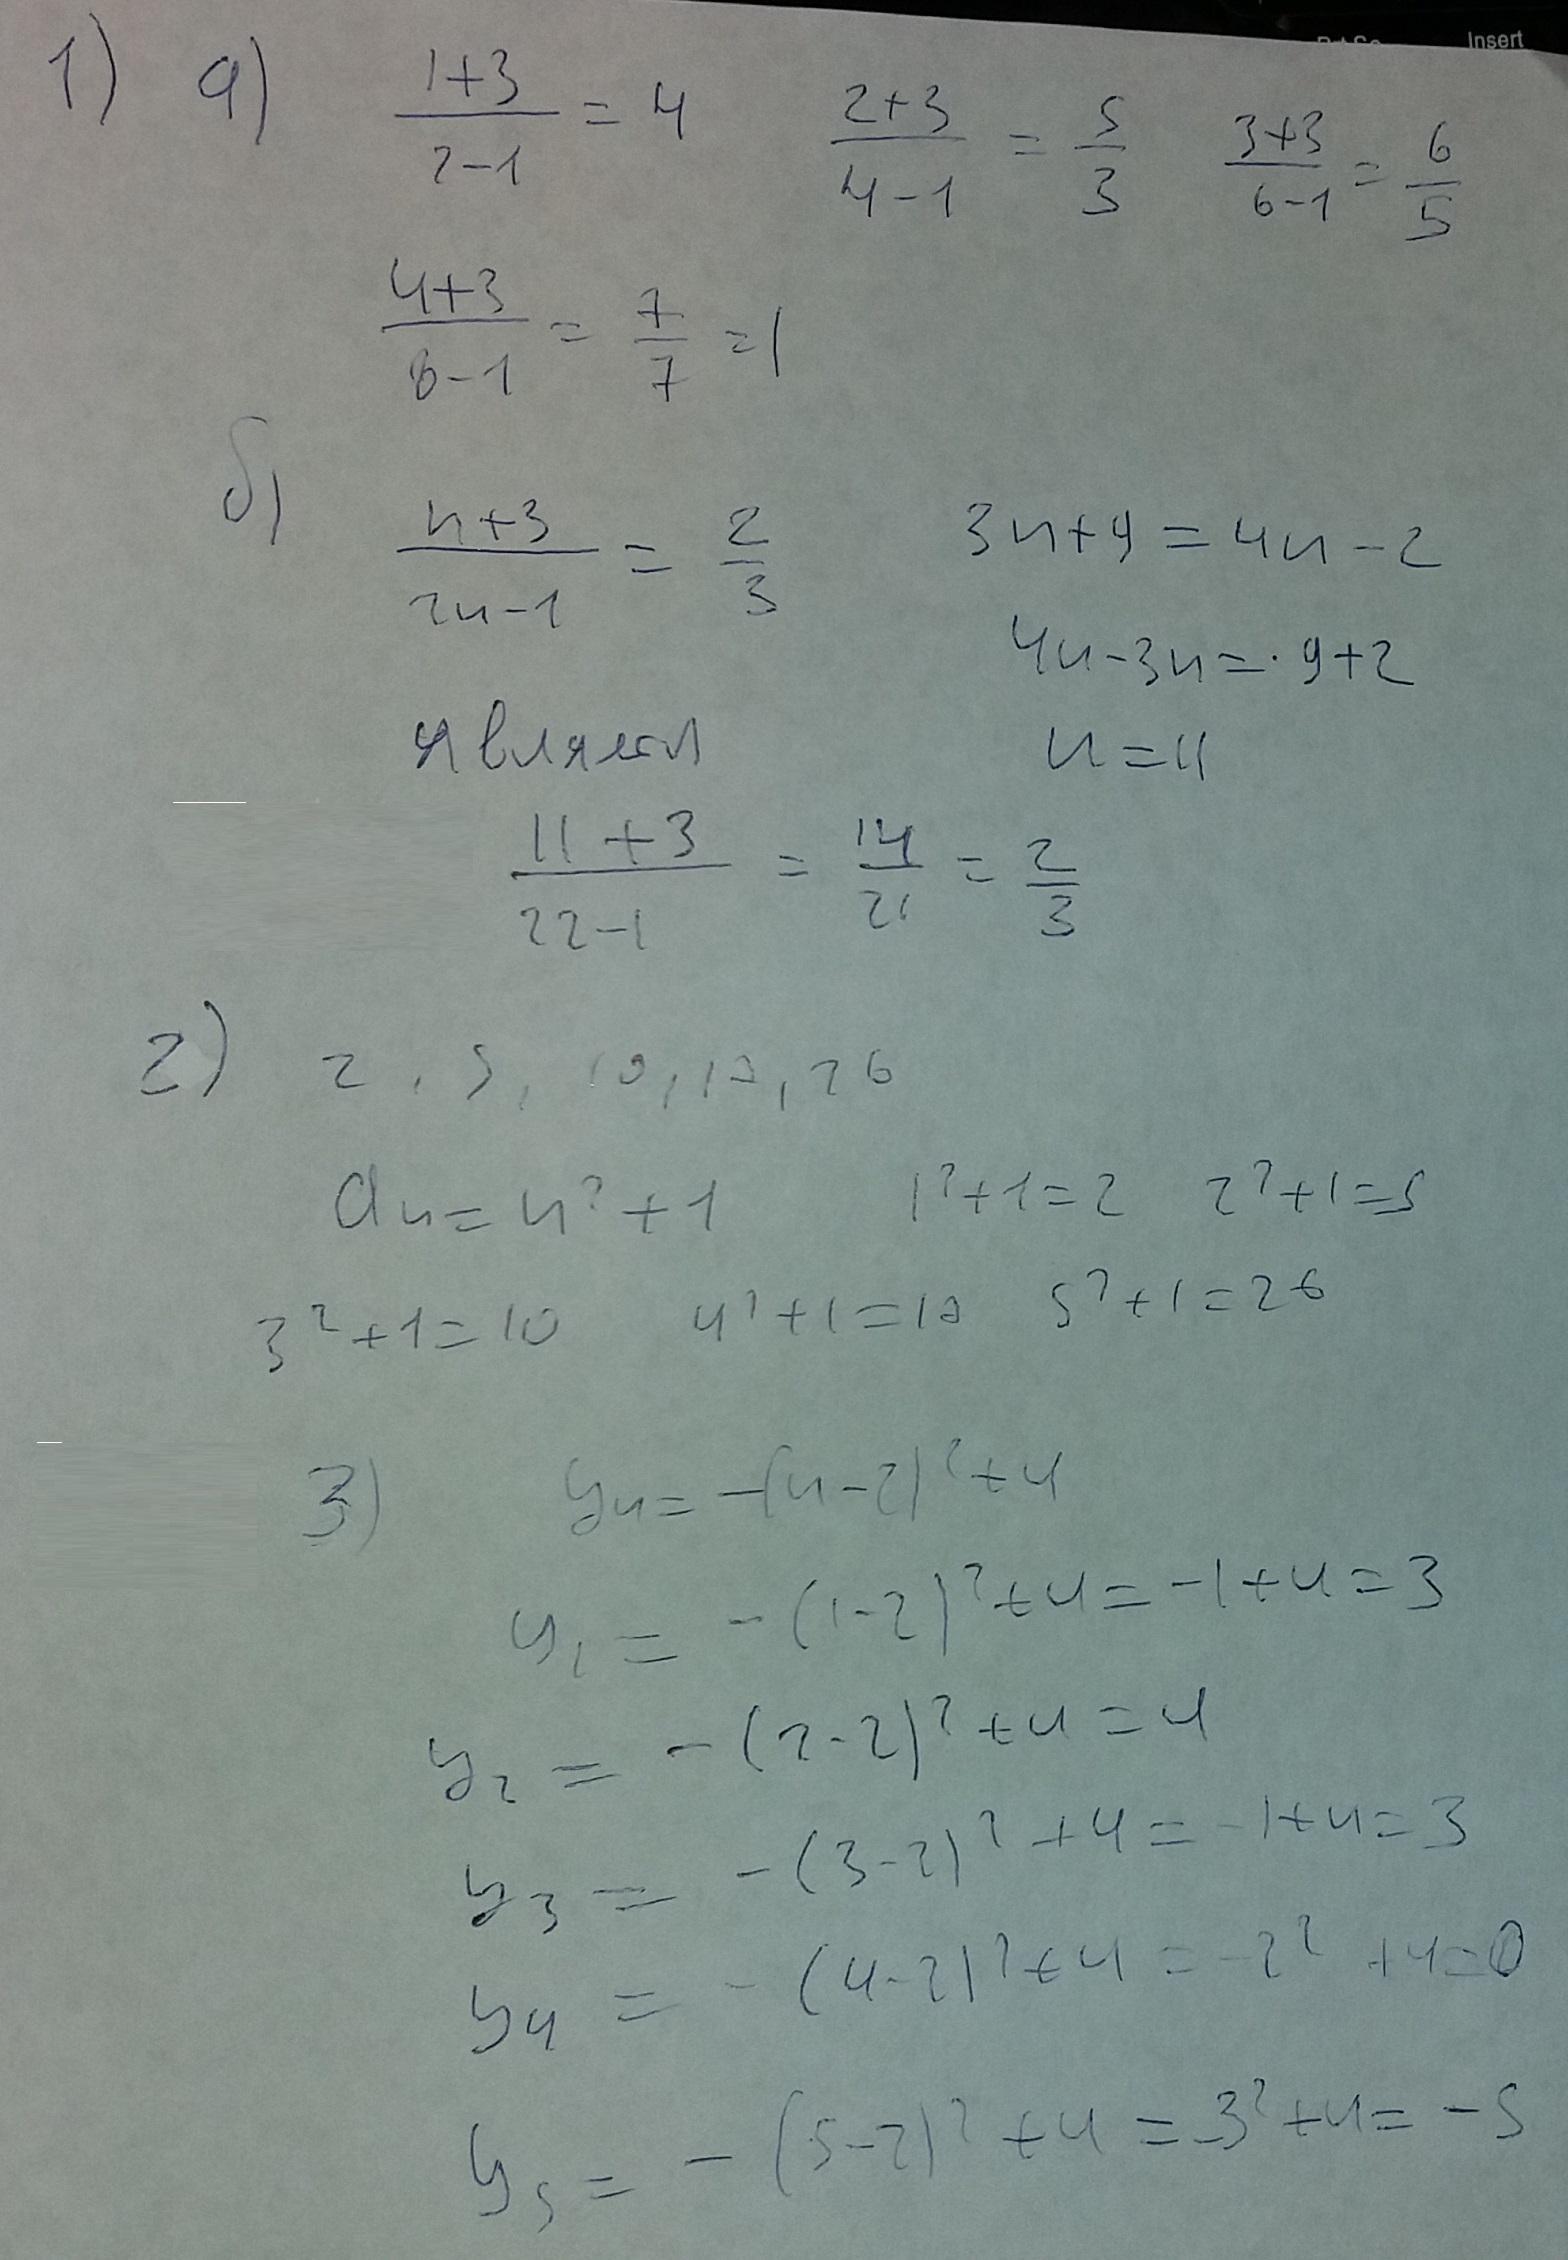 Insert
1) а) (1+3)/(2-1) = 4 (2+3)/(4-1) = 5/3 (3+3)/(6-1) = 6/5
(4+3)/(8-1) = 7/7 = 1
б) (n+3)/(2n-1) = 2/3 3n+9=4n-2
4n-3n=9+2
является n=11
(11+3)/(22-1) = 14/21 = 2/3
2) 2, 5, 10, 17, 26
an=n²+1 1²+1=2 2²+1=5
3²+1=10 4²+1=17 5²+1=26
3) yn=-(n-2)²+4
y₁=-(1-2)²+4=-1+4=3
y₂=-(2-2)²+4=4
y₃=-(3-2)²+4=-1+4=3
y₄=-(4-2)²+4=-2²+4=0
y₅=-(5-2)²+4=-3²+4=-5